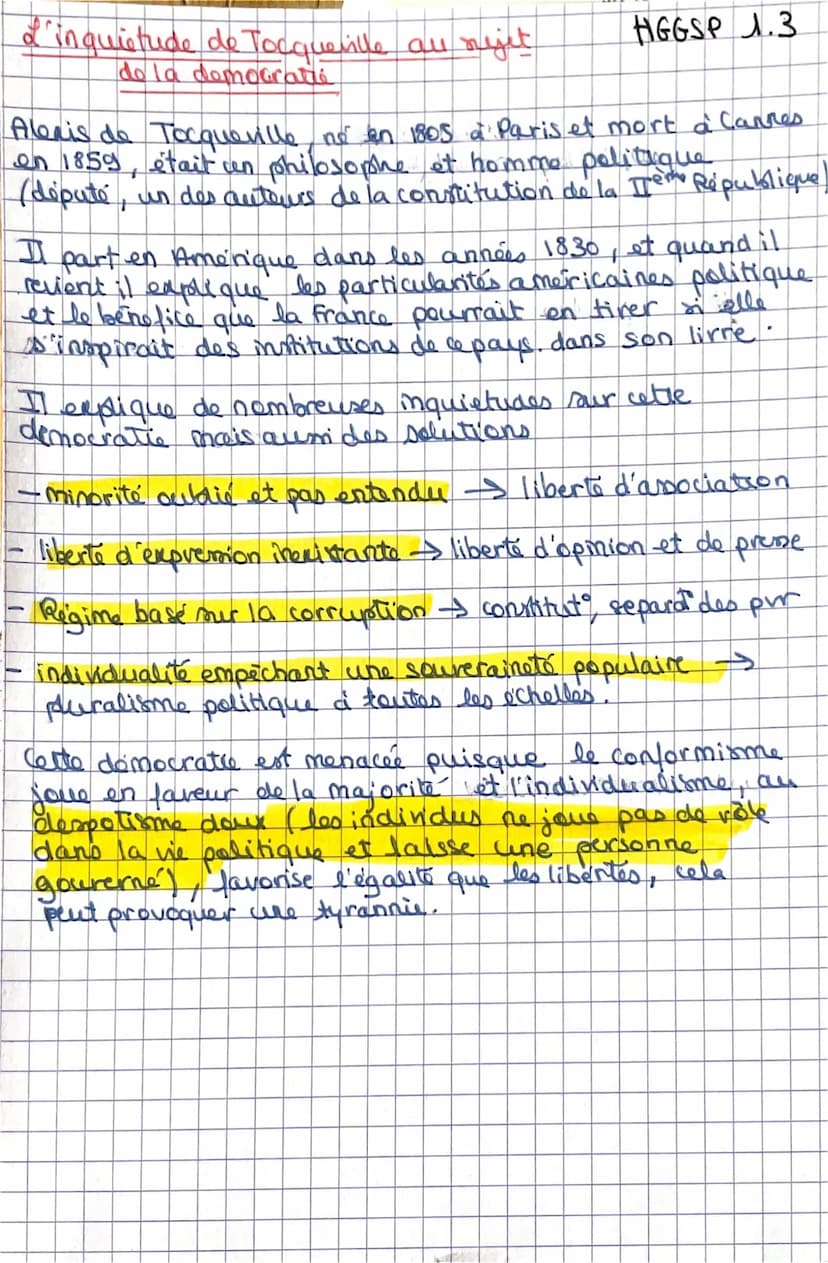 L'inquiétude de Tocqueville au sujet
de la démocratie
HGGSP 1.3
Alexis de Tocqueville, né en 1805 à Paris et mort à Cannes
en 1859, était un philosophe et homme politique
(député, un des auteurs de la constitution de la IIème République)
Il part en Amérique dans les années 1830, et quand il
revient il explique les particularités américaines politique
et le bénéfice que la France pourrait en tirer si elle
s'inspirait des institutions de ce pays. dans son livre.
Il explique de nombreuses inquietudes sur cette
démocratie mais aussi des solutions
- minorité oublié et pas entendu → liberté d'association
- liberté d'expression inexistante → liberté d'opinion et de presse
- Régime basé sur la corruption → constitut°, separat° des pvr
- individualité empêchant une souveraineté populaire →
pluralisme politique à toutes les échelles.
Cette démocratie est menacée puisque le conformisme
joue en faveur de la majorité et l'individualisme, au
despotisme doux (les individus ne joue pas de rôle
dans la vie politique et laisse une personne
gouverné), favorise l'égalité que les libertés, cela
peut provoquer une tyrannie.